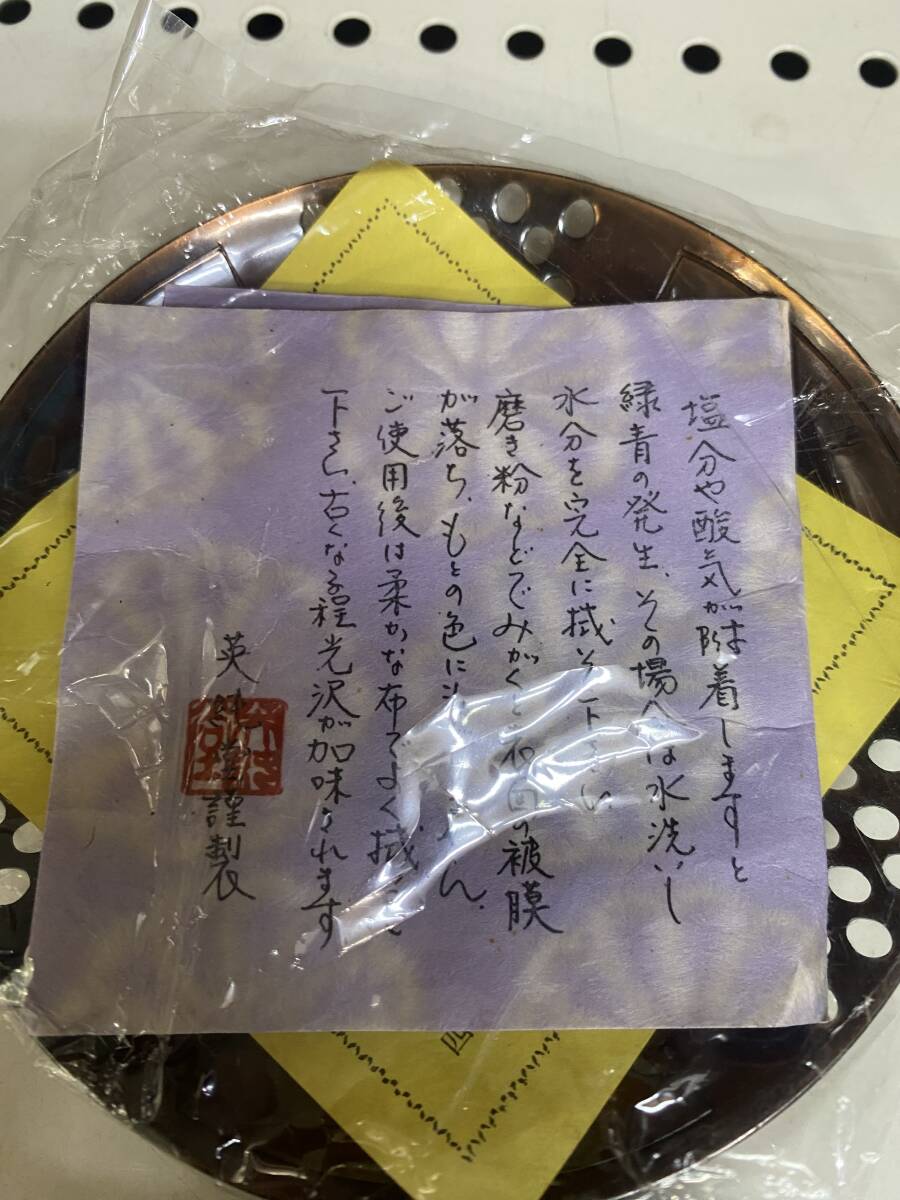 塩分や酸と気が附着しますと
緑青の発生、その場合は水洗いし
水分を完全に拭い下さい
磨き粉などでみがくと 回の被膜
が落ち、もとの色に ん.
ご使用後は柔かな布でよく拭いて
下さい、古くなる程光沢が加味されます
英 堂謹製